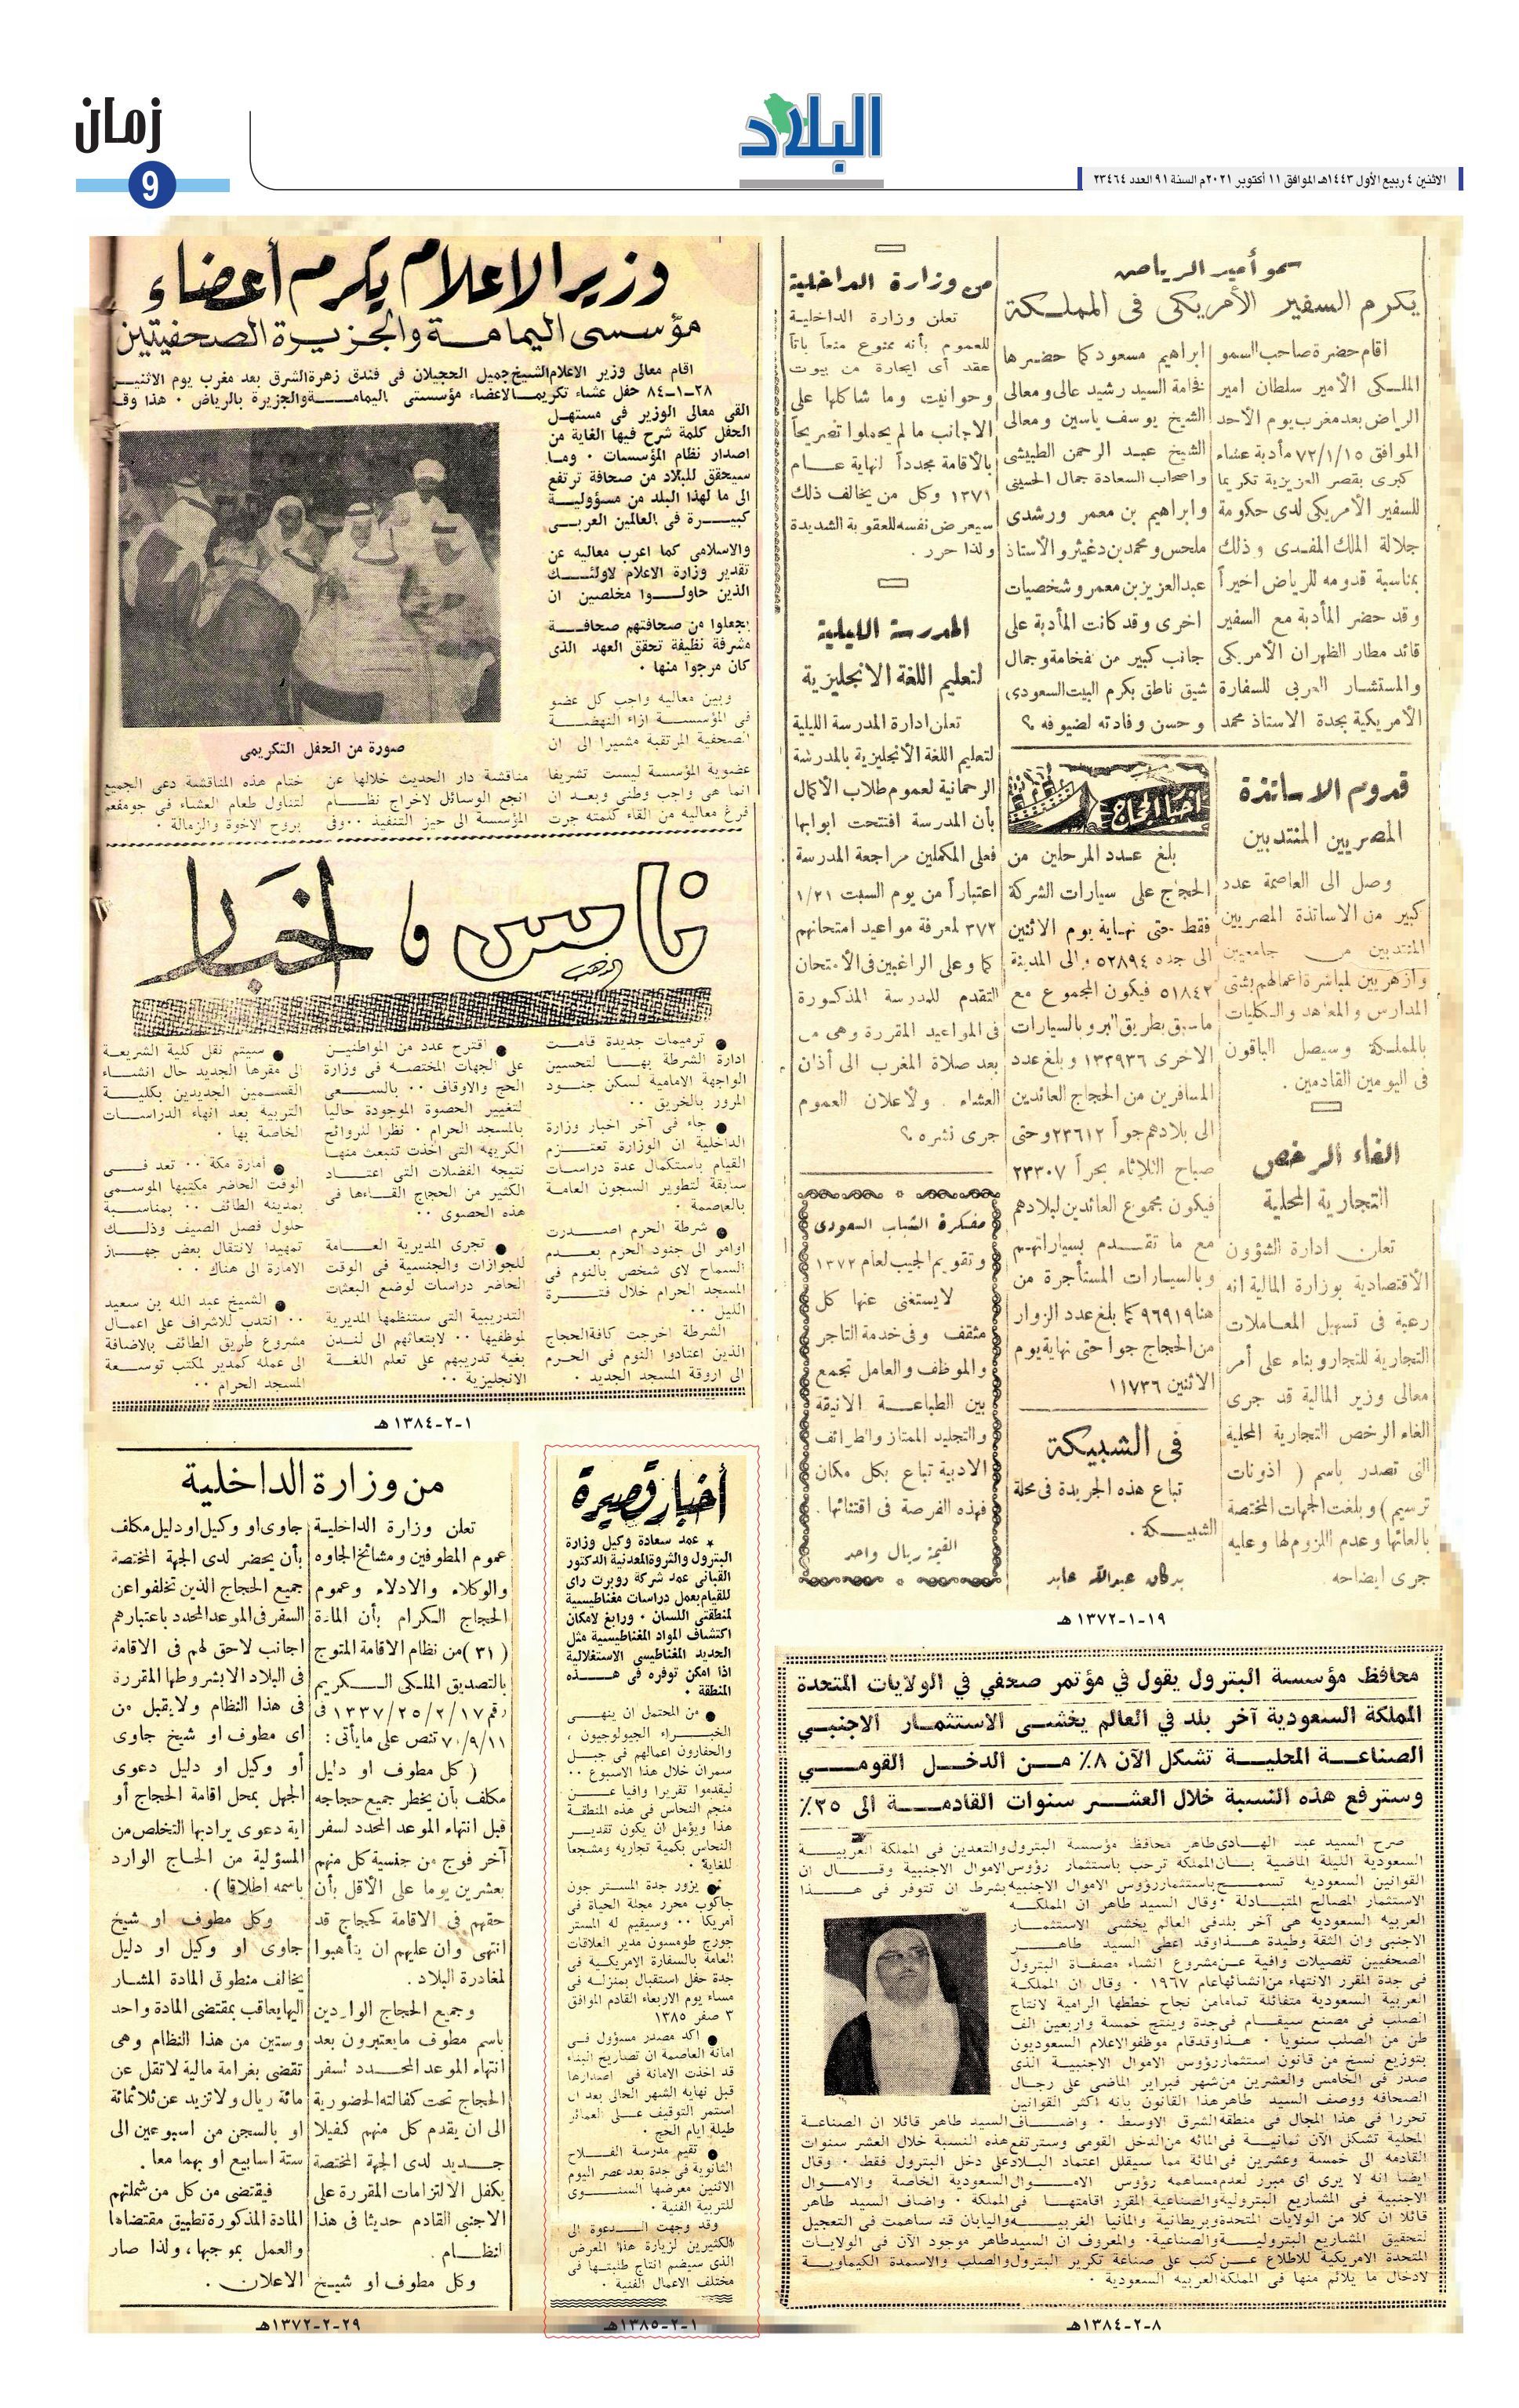 زمان
9
البلاد
الاثنين ٤ ربيع الأول ١٤٤٣هـ الموافق ١١ أكتوبر ٢٠٢١م السنة ٩١ العدد ٢٣٤٦٤
سمو أمير الرياض
يكرم السفير الأمريكى فى المملكة
اقام حضرة صاحب السمو
الملكى الأمير سلطان امير
الرياض بعد مغرب يوم الأحد
الموافق ٧٢/١/١٥ مأدبة عشاء
كبرى بقصر العزيزية تكريما
للسفير الأمريكى لدى حكومة
جلالة الملك المفدى وذلك
بمناسبة قدومه للرياض اخيراً
وقد حضر المأدبة مع السفير
قائد مطار الظهران الأمريكى
والمستشار العربى للسفارة
الأمريكية بجدة الاستاذ محمد
ابراهيم مسعود كما حضرها
فخامة السيد رشيد عالى ومعالى
الشيخ يوسف ياسين ومعالى
الشيخ عبد الرحمن الطبيشى
واصحاب السعادة جمال الحسينى
وابراهيم بن معمر ورشدى
ملحس ومحمد بن دغيثر والأستاذ
عبدالعزيز بن معمر وشخصيات
اخرى وقد كانت المأدبة على
جانب كبير من فخامة وجمال
شيق ناطق بكرم البيت السعودى
وحسن وفادته لضيوفه ؟
قدوم الاساتذة
المصريين المنتدبين
وصل الى العاصمة عدد
كبير من الاساتذة المصريين
المنتدبين من جامعيين
وازهريين لمباشرة اعمالهم بشتى
المدارس والمعاهد والكليات
بالمملكة وسيصل الباقون
فى اليومين القادمين .
الغاء الرخص
التجارية المحلية
تعلن ادارة الشؤون
الأقتصادية بوزارة المالية انه
رغبة فى تسهيل المعاملات
التجارية للتجار وبناء على أمر
معالى وزير المالية قد جرى
الغاء الرخص التجارية المحلية
التى تصدر باسم ( اذونات
ترسيم ) وبلغت الجهات المختصة
بالغائها وعدم اللزوم لها وعليه
جرى ايضاحه
أخبار الحجاج
بلغ عدد المرحلين من
الحجاج على سيارات الشركة
فقط حتى نهاية يوم الاثنين
الى جده ٥٢٨٩٤ والى المدينة
٥١٨٤٢ فيكون المجموع مع
ماسبق بطريق البر وبالسيارات
الاخرى ١٣٣٩٣٦ وبلغ عدد
المسافرين من الحجاج العائدين
الى بلادهم جواً ٢٣٦١٢ وحتى
صباح الثلاثاء بحراً ٢٣٣٠٧
فيكون مجموع العائدين لبلادهم
مع ما تقدم بسياراتهم
وبالسيارات المستأجرة من
هنا ٩٦٩١٩ كما بلغ عدد الزوار
من الحجاج جوا حتى نهاية يوم
الاثنين ١١٧٣٦
فى الشبيكة
تباع هذه الجريدة فى محلة
الشبيكة .
بدكان عبدالله عابد
من وزارة الداخلية
تعلن وزارة الداخلية
للعموم بأنه ممنوع منعاً باتاً
عقد أى ايجارة من بيوت
وحوانيت وما شاكلها على
الاجانب مالم يحملوا تصريحاً
بالأقامة مجدداً لنهاية عام
١٣٧١ وكل من يخالف ذلك
سيعرض نفسه للعقوبة الشديدة
ولذا حرر .
المدرسة الليلية
لتعليم اللغة الانجليزية
تعلن ادارة المدرسة الليلية
لتعليم اللغة الأنجليزية بالمدرسة
الرحمانية لعموم طلاب الأكمال
بأن المدرسة افتتحت ابوابها
فعلى المكملين مراجعة المدرسة
اعتباراً من يوم السبت ١/٢١
٣٧٢ لمعرفة مواعيد امتحانهم
كما وعلى الراغبين فى الأمتحان
التقدم للمدرسة المذكورة
فى المواعيد المقررة وهى من
بعد صلاة المغرب الى أذان
العشاء . ولأعلان العموم
جرى نشره ؟
مفكرة الشباب السعودى
وتقويم الجيب لعام ١٣٧٢
لايستغنى عنها كل
مثقف وفى خدمة التاجر
والموظف والعامل تجمع
بين الطباعة الانيقة
والتجليد الممتاز والطرائف
الادبية تباع بكل مكان
فهذه الفرصة فى اقتنائها .
القيمة ريال واحد
١٩-١-١٣٧٢ هـ
وزير الاعلام يكرم أعضاء
مؤسسى اليمامة والجزيرة الصحفيتين
اقام معالى وزير الاعلام الشيخ جميل الحجيلان فى فندق زهرة الشرق بعد مغرب يوم الاثنين
٢٨-١-٨٤ حفل عشاء تكريما لاعضاء مؤسستى اليمامة والجزيرة بالرياض . هذا وقد
القى معالى الوزير فى مستهل
الحفل كلمة شرح فيها الغاية من
اصدار نظام المؤسسات . وما
سيحقق للبلاد من صحافة ترتفع
الى ما لهذا البلد من مسؤولية
كبيرة فى العالمين العربى
والاسلامى كما اعرب معاليه عن
تقدير وزارة الاعلام لاولئك
الذين حاولوا مخلصين ان
يجعلوا من صحافتهم صحافة
مشرفة نظيفة تحقق العهد الذى
كان مرجوا منها .
وبين معاليه واجب كل عضو
فى المؤسسة ازاء النهضة
الصحفية المرتقبة مشيرا الى ان
عضوية المؤسسة ليست تشريفا
انما هى واجب وطنى وبعد ان
فرغ معاليه من القاء كلمته جرت
صورة من الحفل التكريمى
مناقشة دار الحديث خلالها عن
انجع الوسائل لاخراج نظام
المؤسسة الى حيز التنفيذ .. وفى
ختام هذه المناقشة دعى الجميع
لتناول طعام العشاء فى جو مفعم
بروح الاخوة والزمالة .
ناس و اخبار
● ترميمات جديدة قامت
ادارة الشرطة بها لتحسين
الواجهة الامامية لسكن جنود
المرور بالخريق ..
● جاء فى آخر اخبار وزارة
الداخلية ان الوزارة تعتزم
القيام باستكمال عدة دراسات
سابقة لتطوير السجون العامة
بالعاصمة .
● شرطة الحرم اصدرت
اوامر الى جنود الحرم بعدم
السماح لاى شخص بالنوم فى
المسجد الحرام خلال فترة
الليل ..
الشرطة اخرجت كافة الحجاج
الذين اعتادوا النوم فى الحرم
الى اروقة المسجد الجديد .
● اقترح عدد من المواطنين
على الجهات المختصة فى وزارة
الحج والاوقاف .. بالسعى
لتغيير الحصوة الموجودة حاليا
بالمسجد الحرام . نظرا للروائح
الكريهه التى اخذت تنبعث منها
نتيجه الفضلات التى اعتاد
الكثير من الحجاج القاءها فى
هذه الحصوى ..
● تجرى المديرية العامة
للجوازات والجنسية فى الوقت
الحاضر دراسات لوضع البعثات
التدريبية التى ستنظمها المديرية
لموظفيها .. لابتعاثهم الى لندن
بغيه تدريبهم على تعلم اللغة
الانجليزية ..
● سيتم نقل كلية الشريعة
الى مقرها الجديد حال انشاء
القسمين الجديدين بكلية
التربية بعد انهاء الدراسات
الخاصة بها .
● امارة مكة .. تعد فى
الوقت الحاضر مكتبها الموسمى
بمدينه الطائف .. بمناسبة
حلول فصل الصيف وذلك
تمهيدا لانتقال بعض جهاز
الامارة الى هناك ..
● الشيخ عبد الله بن سعيد
.. انتدب للاشراف على اعمال
مشروع طريق الطائف بالاضافة
الى عمله كمدير لمكتب توسعة
المسجد الحرام ..
١-٢-١٣٨٤ هـ
محافظ مؤسسة البترول يقول في مؤتمر صحفي في الولايات المتحدة
المملكة السعودية آخر بلد في العالم يخشى الاستثمار الاجنبي
الصناعة المحلية تشكل الآن ٨٪ من الدخل القومي
وسترفع هذه النسبة خلال العشر سنوات القادمة الى ٣٥٪
صرح السيد عبد الهادى طاهر محافظ مؤسسة البترول والتعدين فى المملكة العربية
السعودية الليلة الماضية بان المملكة ترحب باستثمار رؤوس الاموال الاجنبية وقال ان
القوانين السعودية تسمح باستثمار رؤوس الاموال الاجنبيه بشرط ان تتوفر فى هذا
الاستثمار المصالح المتبادلة . وقال السيد طاهر ان المملكة
العربيه السعودية هى آخر بلد فى العالم يخشى الاستثمار
الاجنبى وان الثقة وطيدة هذا وقد اعطى السيد طاهر
الصحفيين تفصيلات وافية عن مشروع انشاء مصفاة البترول
فى جدة المقرر الانتهاء من انشائها عام ١٩٦٧ . وقال ان المملكة
العربية السعودية متفائلة تماما من نجاح خططها الرامية لانتاج
الصلب فى مصنع سيقام فى جدة وينتج خمسة واربعين الف
طن من الصلب سنويا . هذا وقد قام موظفو الاعلام السعوديون
بتوزيع نسخ من قانون استثمار رؤوس الاموال الاجنبية الذى
صدر فى الخامس والعشرين من شهر فبراير الماضى على رجال
الصحافه ووصف السيد طاهر هذا القانون بأنه اكثر القوانين
تحررا فى هذا المجال فى منطقة الشرق الاوسط . واضاف السيد طاهر قائلا ان الصناعة
المحلية تشكل الآن ثمانية فى المائه من الدخل القومى وسترتفع هذه النسبة خلال العشر سنوات
القادمه الى خمسة وعشرين فى المائة مما سيقلل اعتماد البلاد على دخل البترول فقط . وقال
ايضا انه لا يرى اى مبرر لعدم مساهمه رؤوس الاموال السعودية الخاصة والاموال
الاجنبية فى المشاريع البترولية والصناعية المقرر اقامتها فى المملكة . واضاف السيد طاهر
قائلا ان كلا من الولايات المتحدة وبريطانية والمانيا الغربية واليابان قد ساهمت فى التعجيل
لتحقيق المشاريع البترولية والصناعية. والمعروف ان السيد طاهر موجود الآن فى الولايات
المتحدة الامريكية للاطلاع عن كثب على صناعة تكرير البترول والصلب والاسمدة الكيماوية
لادخال ما يلائم منها فى المملكة العربيه السعودية .
٨-٢-١٣٨٤ هـ
أخبار قصيرة
* عمد سعادة وكيل وزارة
البترول والثروة المعدنية الدكتور
القبانى عمد شركة روبرت راى
للقيام بعمل دراسات مغناطيسية
لمنطقتى اللسان . ورابغ لامكان
اكتشاف المواد المغناطيسية مثل
الحديد المغناطيسى الاستغلالية
اذا امكن توفره فى هذه
المنطقة .
● من المحتمل ان ينهى
الخبراء الجيولوجيون ،
والحفارون اعمالهم فى جبل
سمران خلال هذا الاسبوع ..
ليقدموا تقريرا وافيا عن
منجم النحاس فى هذه المنطقة
هذا ويؤمل ان يكون تقدير
النحاس بكمية تجاريه ومشجعا
للغاية .
● يزور جدة المستر جون
جاكوب محرر مجلة الحياة فى
أمريكا .. وسيقيم له المستر
جورج طومسون مدير العلاقات
العامة بالسفارة الامريكية فى
جدة حفل استقبال بمنزله فى
مساء يوم الاربعاء القادم الموافق
٣ صفر ١٣٨٥
● اكد مصدر مسؤول فى
امانة العاصمة ان تصاريح البناء
قد اخذت الامانة فى اصدارها
قبل نهايه الشهر الحالى بعد ان
استمر التوقيف على العمائر
طيلة ايام الحج .
● تقيم مدرسة الفلاح
الثانوية فى جدة بعد عصر اليوم
الاثنين معرضها السنوى
للتربية الفنية .
وقد وجهت الدعوة الى
الكثيرين لزيارة هذا المعرض
الذى سيضم انتاج طلبتها فى
مختلف الاعمال الفنية .
١-٢-١٣٨٥هـ
من وزارة الداخلية
تعلن وزارة الداخلية
عموم المطوفين ومشائخ الجاوه
والوكلاء والادلاء وعموم
الحجاج الكرام بأن المادة
( ٣١ ) من نظام الاقامة المتوج
بالتصديق الملكى الكريم
رقم ١٣٣٧/٢٥/٢/١٧ فى
٧٠/٩/١١ تنص على مايأتى :
( كل مطوف او دليل
مكلف بأن يخطر جميع حجاجه
قبل انتهاء الموعد المحدد لسفر
آخر فوج من جنسية كل منهم
بعشرين يوما على الأقل بأن
حقهم فى الاقامة كحجاج قد
انتهى وان عليهم ان يتأهبوا
لمغادرة البلاد .
وجميع الحجاج الواردين
باسم مطوف ما يعتبرون بعد
انتهاء الموعد المحدد لسفر
الحجاج تحت كفالته الحضورية
الى ان يقدم كل منهم كفيلا
جديد لدى الجهة المختصة
يكفل الالتزامات المقررة على
الاجنبى القادم حديثا فى هذا
النظام .
وكل مطوف او شيخ
جاوى او وكيل او دليل مكلف
بأن يحضر لدى الجهة المختصة
جميع الحجاج الذين تخلفوا عن
السفر فى الموعد المحدد باعتبارهم
اجانب لاحق لهم فى الاقامة
فى البلاد الا بشروطها المقررة
فى هذا النظام ولا يقبل من
اى مطوف او شيخ جاوى
أو وكيل او دليل دعوى
الجهل بمحل اقامة الحجاج أو
اية دعوى يراد بها التخلص من
المسؤلية من الحاج الوارد
باسمه اطلاقا ) .
وكل مطوف او شيخ
جاوى او وكيل او دليل
يخالف منطوق المادة المشار
اليها يعاقب بمقتضى المادة واحد
وستين من هذا النظام وهى
تقضى بغرامة مالية لا تقل عن
مائة ريال ولا تزيد عن ثلاثمائة
او بالسجن من اسبوعين الى
ستة اسابيع او بهما معا .
فيقتضى من كل من شملتهم
المادة المذكورة تطبيق مقتضاها
والعمل بموجبها ، ولذا صار
الاعلان .
٢٩-٢-١٣٧٢هـ